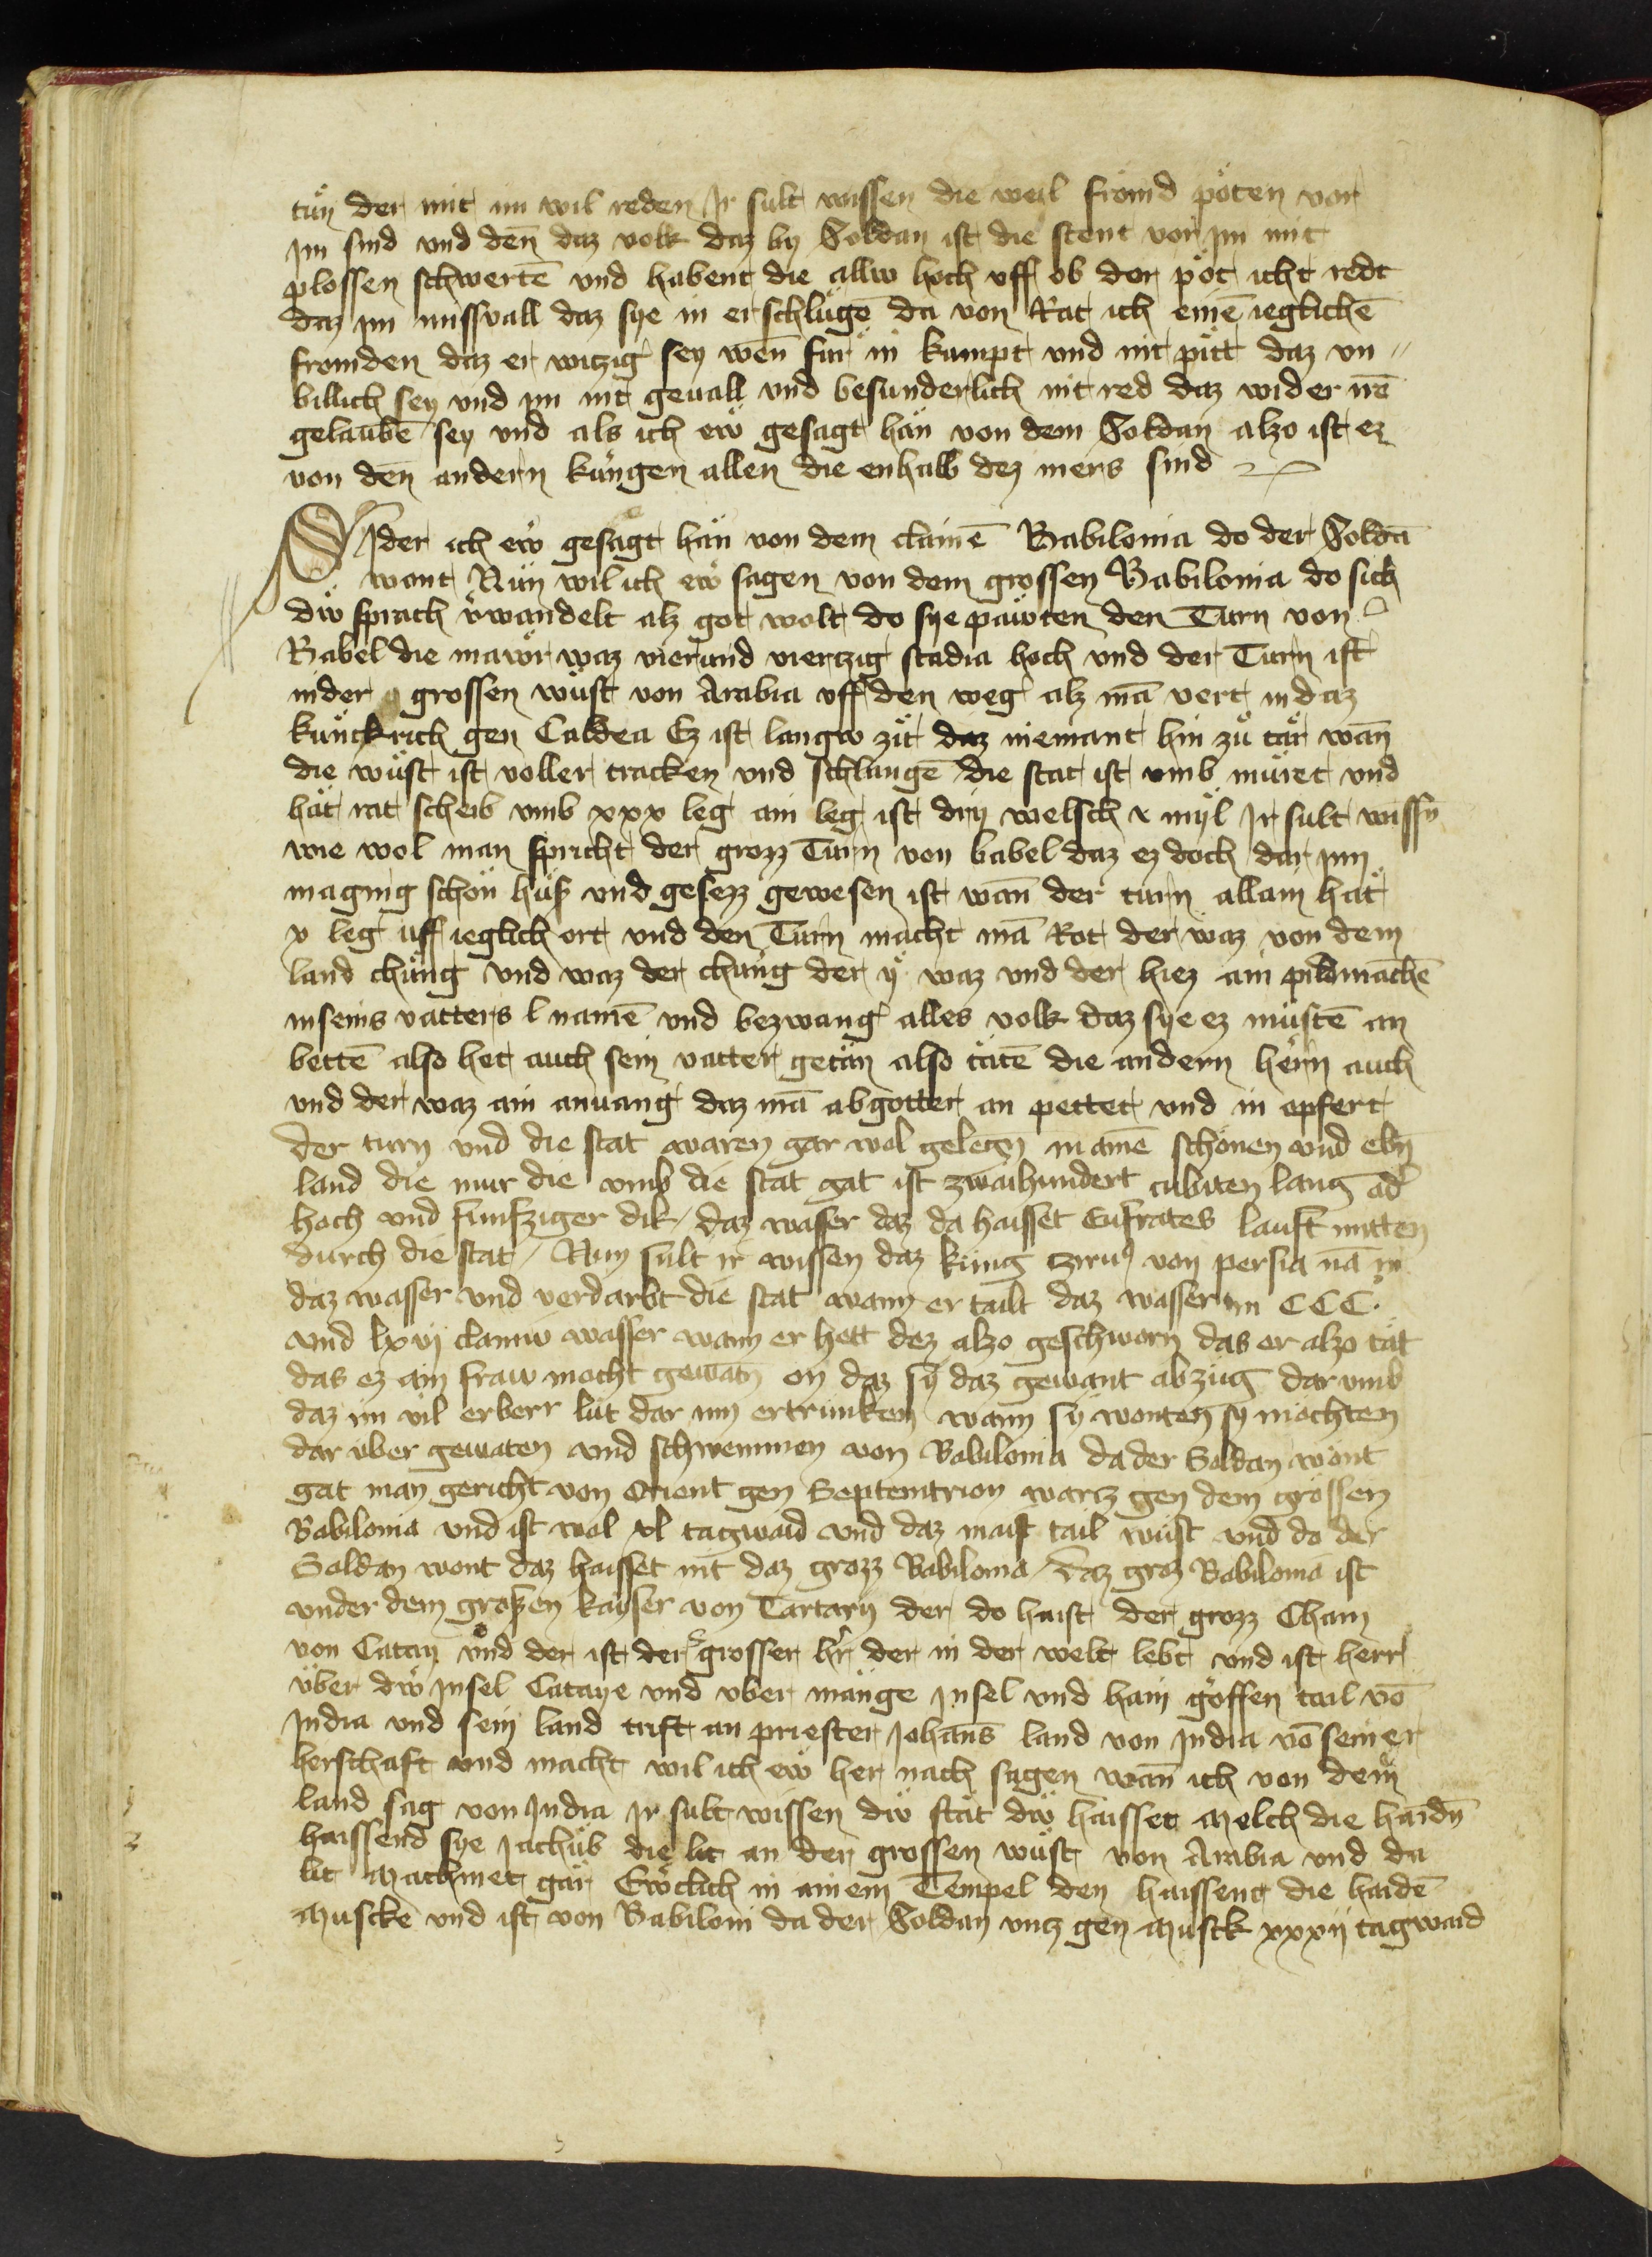 tuͤn der mit im wil reden Ir sult wissen die weil froͤmd poͤten vor
im sind vnd den̄ daz volk daz by Soldan ist die stent vor im mit
plossen schwertē vnd habent die allw hoch vff ob der pot icht redt
daz im missvall daz sye in erschluͤgē da von Rat ich einē ieglichē
fromden daz er witzig sey wen̄ fuͤr in kumpt vnd nit pitt daz vn〃
billich sey vnd im nit geuall vnd besunderlich nit red daz wider irē
gelaubē sey vnd als ich ew gesagt han von dem Soldan alzo ist ez
von den̄ andern kuͤngen allen die enhalb dez mers sind
Sider ich ew gesagt han von dem clainē Babilonia do der Soldā
wont Nuͤn wil ich ew sagen von dem grossen Babilonia do sich
diw sprach v̓wandelt alz got wolt do sye pawten den Turn von
Babel die mawr waz vierund viertzig stadia hoch vnd der Turn ist
in der grossen wuͤst von Arabia vff den weg alz mā vert in daz
kuͤnckrich gen Caldea Ez ist langw zit daz niemant hin zuͦ tar wan̄
die wuͤst ist voller tracken vnd schlangē die stat ist vmb muret vnd
hat rat scheib vmb xxv leg ain leg ist dry welsch x myl Ir sult wissn̄
wie wol man spricht der grozz Turn von babel daz ez doch dar inn
maging schoͤn huͤß vnd gesezz gewesen ist wan̄ der turn allain hat
x leg uff ieglich ort vnd den Turn macht mā Rot der waz von dem
land chuͤng vnd waz der chuͤng der ÿ waz vnd der hiez ain pild machē
in seins vatters l namē vnd bezwang alles volk daz sye ez muͤstē an
bettē also het auch sein vatter getan also tatē die andern herrn auch
vnd der waz ain anuang daz mā abgotter an pettet vnd in opfert
der turn vnd die stat waren gar wol gelegn̄ in ainē schonen vnd ebn̄
land die mur die vmb die stat gat ist zwaihundert cubiten lang od̓
hoch vnd funfziger dik / daz wasser daz da haisset Eufrates lauft mitten
durch die stat / Nun sult ir wissen daz kung zirus von persia nā in
daz wasser vnd verdarbt die stat wann er tailt daz wasser im CCC.
vnd lxvj clainw wasser wann er hett dez alzo geschworn das er alzo tät
das ez ain fraw mocht gewatn̄ on daz sy daz gewant abzug dar vmb
daz im vil erberr lut dar inn ertrunken wann sy wonten sy mochten
dar uber gewaten vnd schwemmen von Babilonia da der Soldan wont
gat man gericht von Orient gen Septemtrion wartz gen dem grossen
Babilonia vnd ist wol xl tagwaid vnd daz maist tail wüst vnd do der
Soldan wont daz haisset nit daz grozz Babilonia / daz groz Babilonia ist
vnder dem großen kayser von Tartary der do haist der grozz Cham
von Catay vnd der ist der grosser hr̄ der in der welt lebt vnd ist herr
uͤber diw insel Cataye vnd vber mange insel vnd hain goffen tail vō
India vnd sein land trift an priester Iohans land von India vō seiner
herschaft vnd macht wil ich ew her nach sagen wan̄ ich von dem
land sag von India Ir sult wissen diw stat diw haisset Melch die haidn̄
haissend sye Iachub die lit an der grossen wuͤst von Arabia vnd da
lit Machmet gar Ewclich in ainem Tempel den haissent die haidē
Musckē vnd ist von Babiloni da der Soldan vntz gen Musck xxxij tagwaid